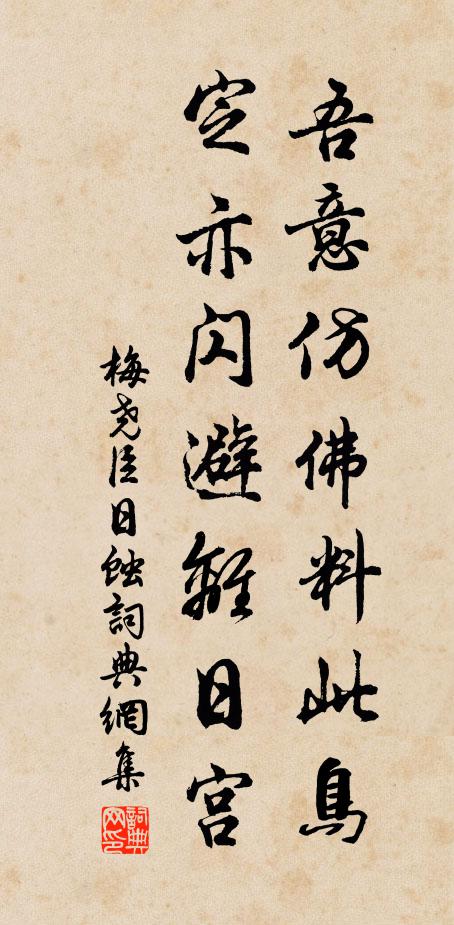 吾意仿佛料此鳥
定亦閃避離日宫
梅堯臣日蝕詞典網集
詞典网印